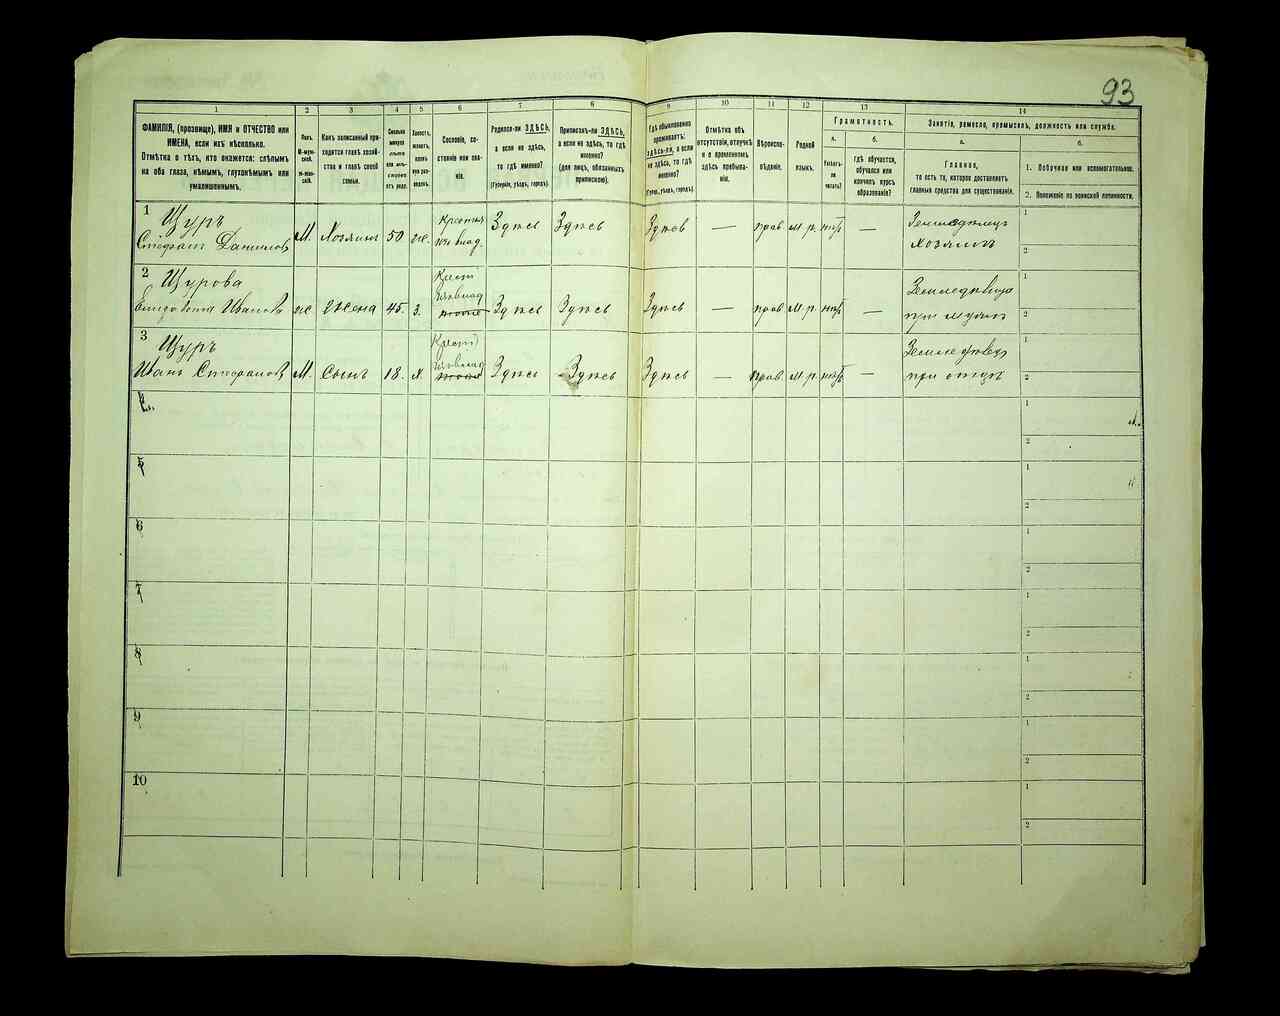 93
1
2
3
4
5
6
7
8
9
10
11
12
13
14
ФАМИЛІЯ, (прозвище), ИМЯ и ОТЧЕСТВО или
ИМЕНА, если ихъ нѣсколько.
Отмѣтка о тѣхъ, кто окажется: слѣпымъ
на оба глаза, нѣмымъ, глухонѣмымъ или
умалишеннымъ.
Полъ.
М-муж-
ской.
Ж-жен-
скій.
Какъ записанный при-
ходится главѣ хозяй-
ства и главѣ своей
семьи.
Сколько
минуло
лѣтъ
или мѣ-
сяцевъ
отъ роду.
Холостъ,
женатъ,
вдовъ
или раз-
веденъ.
Сословіе, со-
стояніе или зва-
ніе.
Родился-ли ЗДѢСЬ,
а если не здѣсь,
то гдѣ именно?
(Губернія, уѣздъ, городъ).
Приписанъ-ли ЗДѢСЬ,
а если не здѣсь, то гдѣ
именно?
(для лицъ, обязанныхъ
припискою).
Гдѣ обыкновенно
проживаетъ:
здѣсь-ли, а если
не здѣсь, то гдѣ
именно?
(Губерн., уѣздъ, городъ).
Отмѣтка объ
отсутствіи, отлучкѣ
и о временномъ
здѣсь пребыва-
ніи.
Вѣроиспо-
вѣданіе.
Родной
языкъ.
Грамотность.
а.
Умѣетъ-
ли чи-
тать?
б.
гдѣ обучается,
обучался или
кончилъ курсъ
образованія?
Занятіе, ремесло, промыселъ, должность или служба.
а.
Главное,
то есть то, которое доставляетъ
главныя средства для существованія.
б.
1. Побочное или вспомогательное.
2. Положеніе по воинской повинности.
1 Щуръ
Стефанъ Даниловъ М. Хозяинъ 50 ж. Здѣсь Здѣсь Здѣсь — прав. м. р. нѣтъ — Земледѣлецъ хозяинъ 1 2
2 Щурова
Елизавета Иванова ж Жена 45. з. Здѣсь Здѣсь Здѣсь — прав. м. р. нѣтъ — при мужѣ 1 2
3 Щуръ
Иванъ Стефановъ М. Сынъ 18. х. Здѣсь Здѣсь Здѣсь — прав. м. р. нѣтъ — при отцѣ 1 2
4 1 2
5 1 2
6 1 2
7 1 2
8 1 2
9 1 2
10 1 2